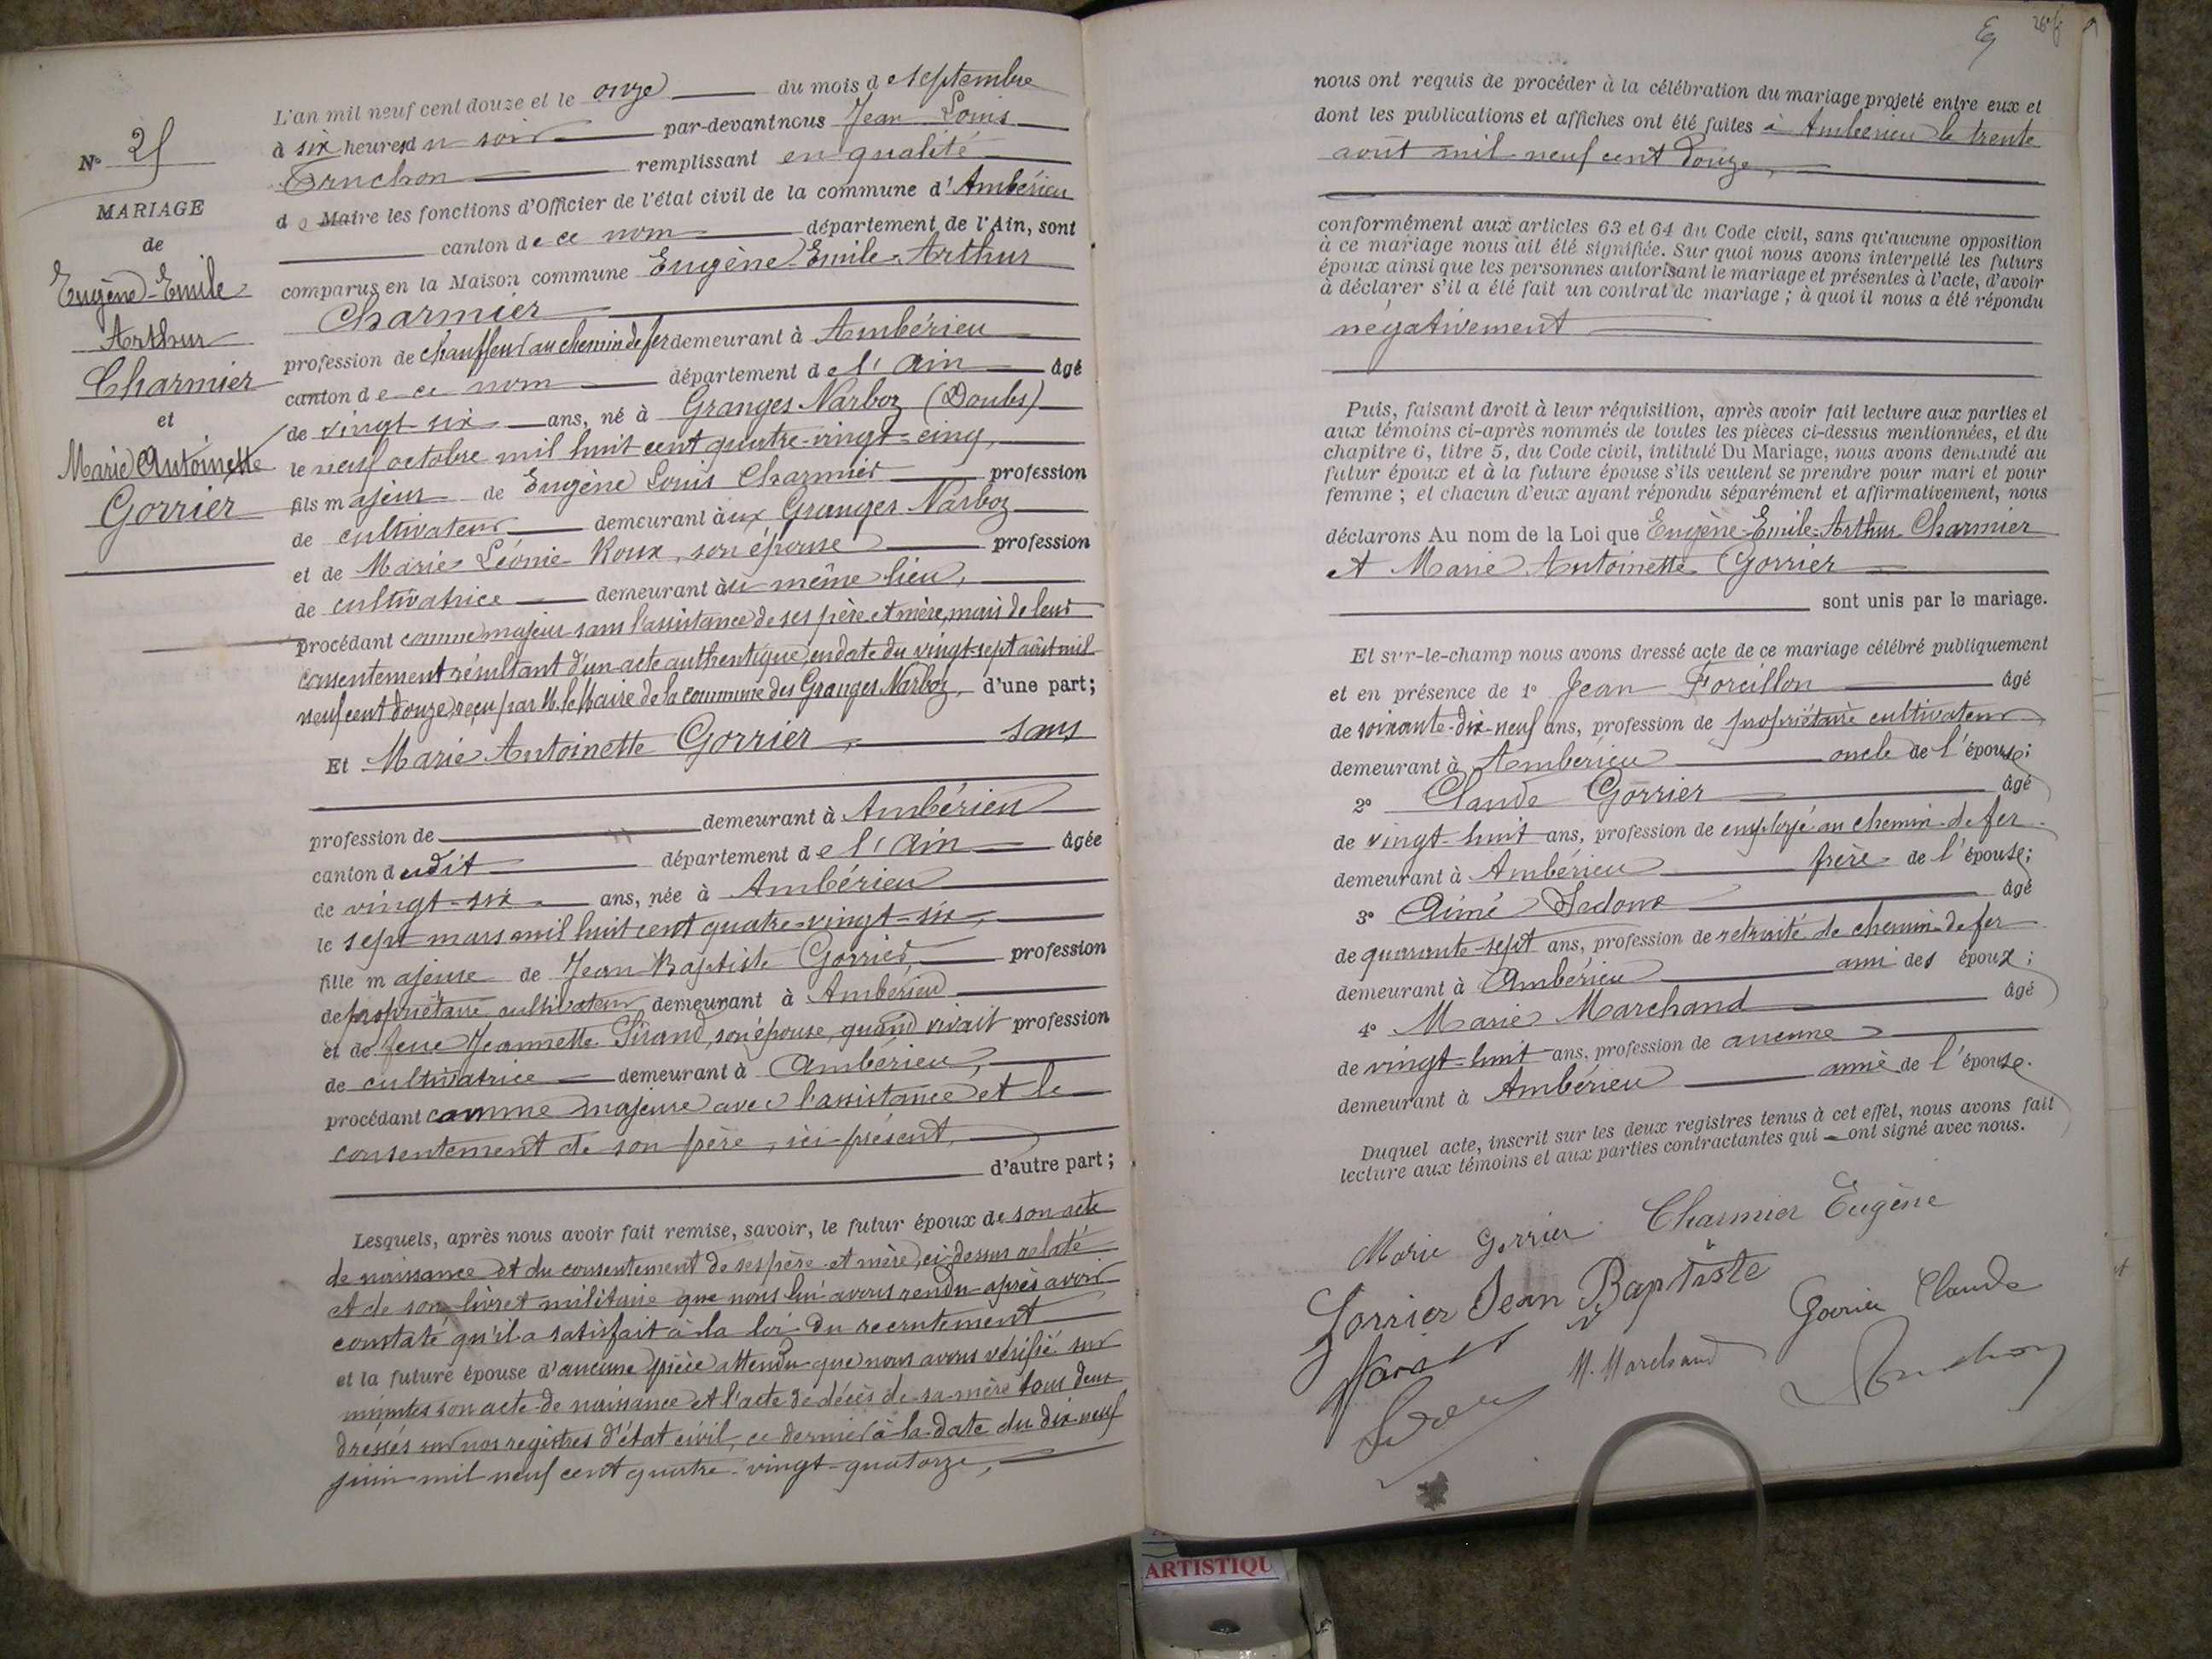 N° 25
MARIAGE
de
Eugène-Emile
Arthur
Charmier
et
Marie Antoinette
Gorrier
L'an mil neuf cent douze et le onze du mois d e septembre
à six heures du soir par-devant nous Jean Louis
Truchon remplissant en qualité
d e Maire les fonctions d'Officier de l'état civil de la commune d' Ambérieu
canton de ce nom département de l'Ain, sont
comparus en la Maison commune Eugène-Emile-Arthur
Charmier
profession de chauffeur au chemin de fer demeurant à Ambérieu
canton d e ce nom département d e l'Ain âgé
de vingt-six ans, né à Granges-Narboz (Doubs)
le neuf octobre mil huit cent quatre-vingt-cinq,
fils m ajeur de Eugène Louis Charmier profession
de cultivateur demeurant à ux Granges Narboz
et de Marie Léonie Roux, son épouse profession
de cultivatrice demeurant à u même lieu,
procédant comme majeur sans l'assistance de ses père et mère, mais de leur
consentement résultant d'un acte authentique, en date du vingt-sept août mil
neuf cent douze, reçu par M. le Maire de la commune des Granges Narboz, d'une part;
Et Marie Antoinette Gorrier, sans
profession de demeurant à Ambérieu
canton d udit département d e l'Ain âgée
de vingt-six ans, née à Ambérieu
le sept mars mil huit cent quatre-vingt-six,
fille m ajeure de Jean-Baptiste Gorrier, profession
de propriétaire cultivateur demeurant à Ambérieu
et de feue Jeannette Sirand, son épouse, quand vivait profession
de cultivatrice demeurant à Ambérieu,
procédant comme majeure avec l'assistance et le
consentement de son père, ici présent,
d'autre part;
Lesquels, après nous avoir fait remise, savoir, le futur époux de son acte
de naissance et du consentement de ses père et mère, ci-dessus relaté
et de son livret militaire que nous lui avons rendu après avoir
constaté qu'il a satisfait à la loi du recrutement
et la future épouse d'aucune pièce attendu que nous avons vérifié sur
minutes son acte de naissance et l'acte de décès de sa mère tous deux
dressés sur nos registres d'état civil, ce dernier à la date du dix-neuf
juin mil neuf cent quatre-vingt-quatorze,
nous ont requis de procéder à la célébration du mariage projeté entre eux et
dont les publications et affiches ont été faites à Ambérieu le trente
août mil neuf cent douze,
conformément aux articles 63 et 64 du Code civil, sans qu'aucune opposition
à ce mariage nous ait été signifiée. Sur quoi nous avons interpellé les futurs
époux ainsi que les personnes autorisant le mariage et présentes à l'acte, d'avoir
à déclarer s'il a été fait un contrat de mariage ; à quoi il nous a été répondu
négativement
Puis, faisant droit à leur réquisition, après avoir fait lecture aux parties et
aux témoins ci-après nommés de toutes les pièces ci-dessus mentionnées, et du
chapitre 6, titre 5, du Code civil, intitulé Du Mariage, nous avons demandé au
futur époux et à la future épouse s'ils veulent se prendre pour mari et pour
femme ; et chacun d'eux ayant répondu séparément et affirmativement, nous
déclarons Au nom de la Loi que Eugène-Emile-Arthur Charmier
et Marie Antoinette Gorrier
sont unis par le mariage.
Et sur-le-champ nous avons dressé acte de ce mariage célébré publiquement
et en présence de 1° Jean Foreillon âgé
de soixante-dix-neuf ans, profession de propriétaire cultivateur
demeurant à Ambérieu oncle de l'épouse;
2° Claude Gorrier âgé
de vingt-huit ans, profession de employé au chemin de fer
demeurant à Ambérieu frère de l'épouse;
3° Aimé Sedoux âgé
de quarante-sept ans, profession de retraité de chemin de fer
demeurant à Ambérieu ami des époux;
4° Marie Marchand âgé
de vingt-huit ans, profession de aucune
demeurant à Ambérieu amie de l'épouse.
Duquel acte, inscrit sur les deux registres tenus à cet effet, nous avons fait
lecture aux témoins et aux parties contractantes qui ont signé avec nous.
Marie Gorrier Charmier Eugène
Gorrier Jean Baptiste
Gorrier Claude
M. Marchand
Truchon
ARTISTIQU